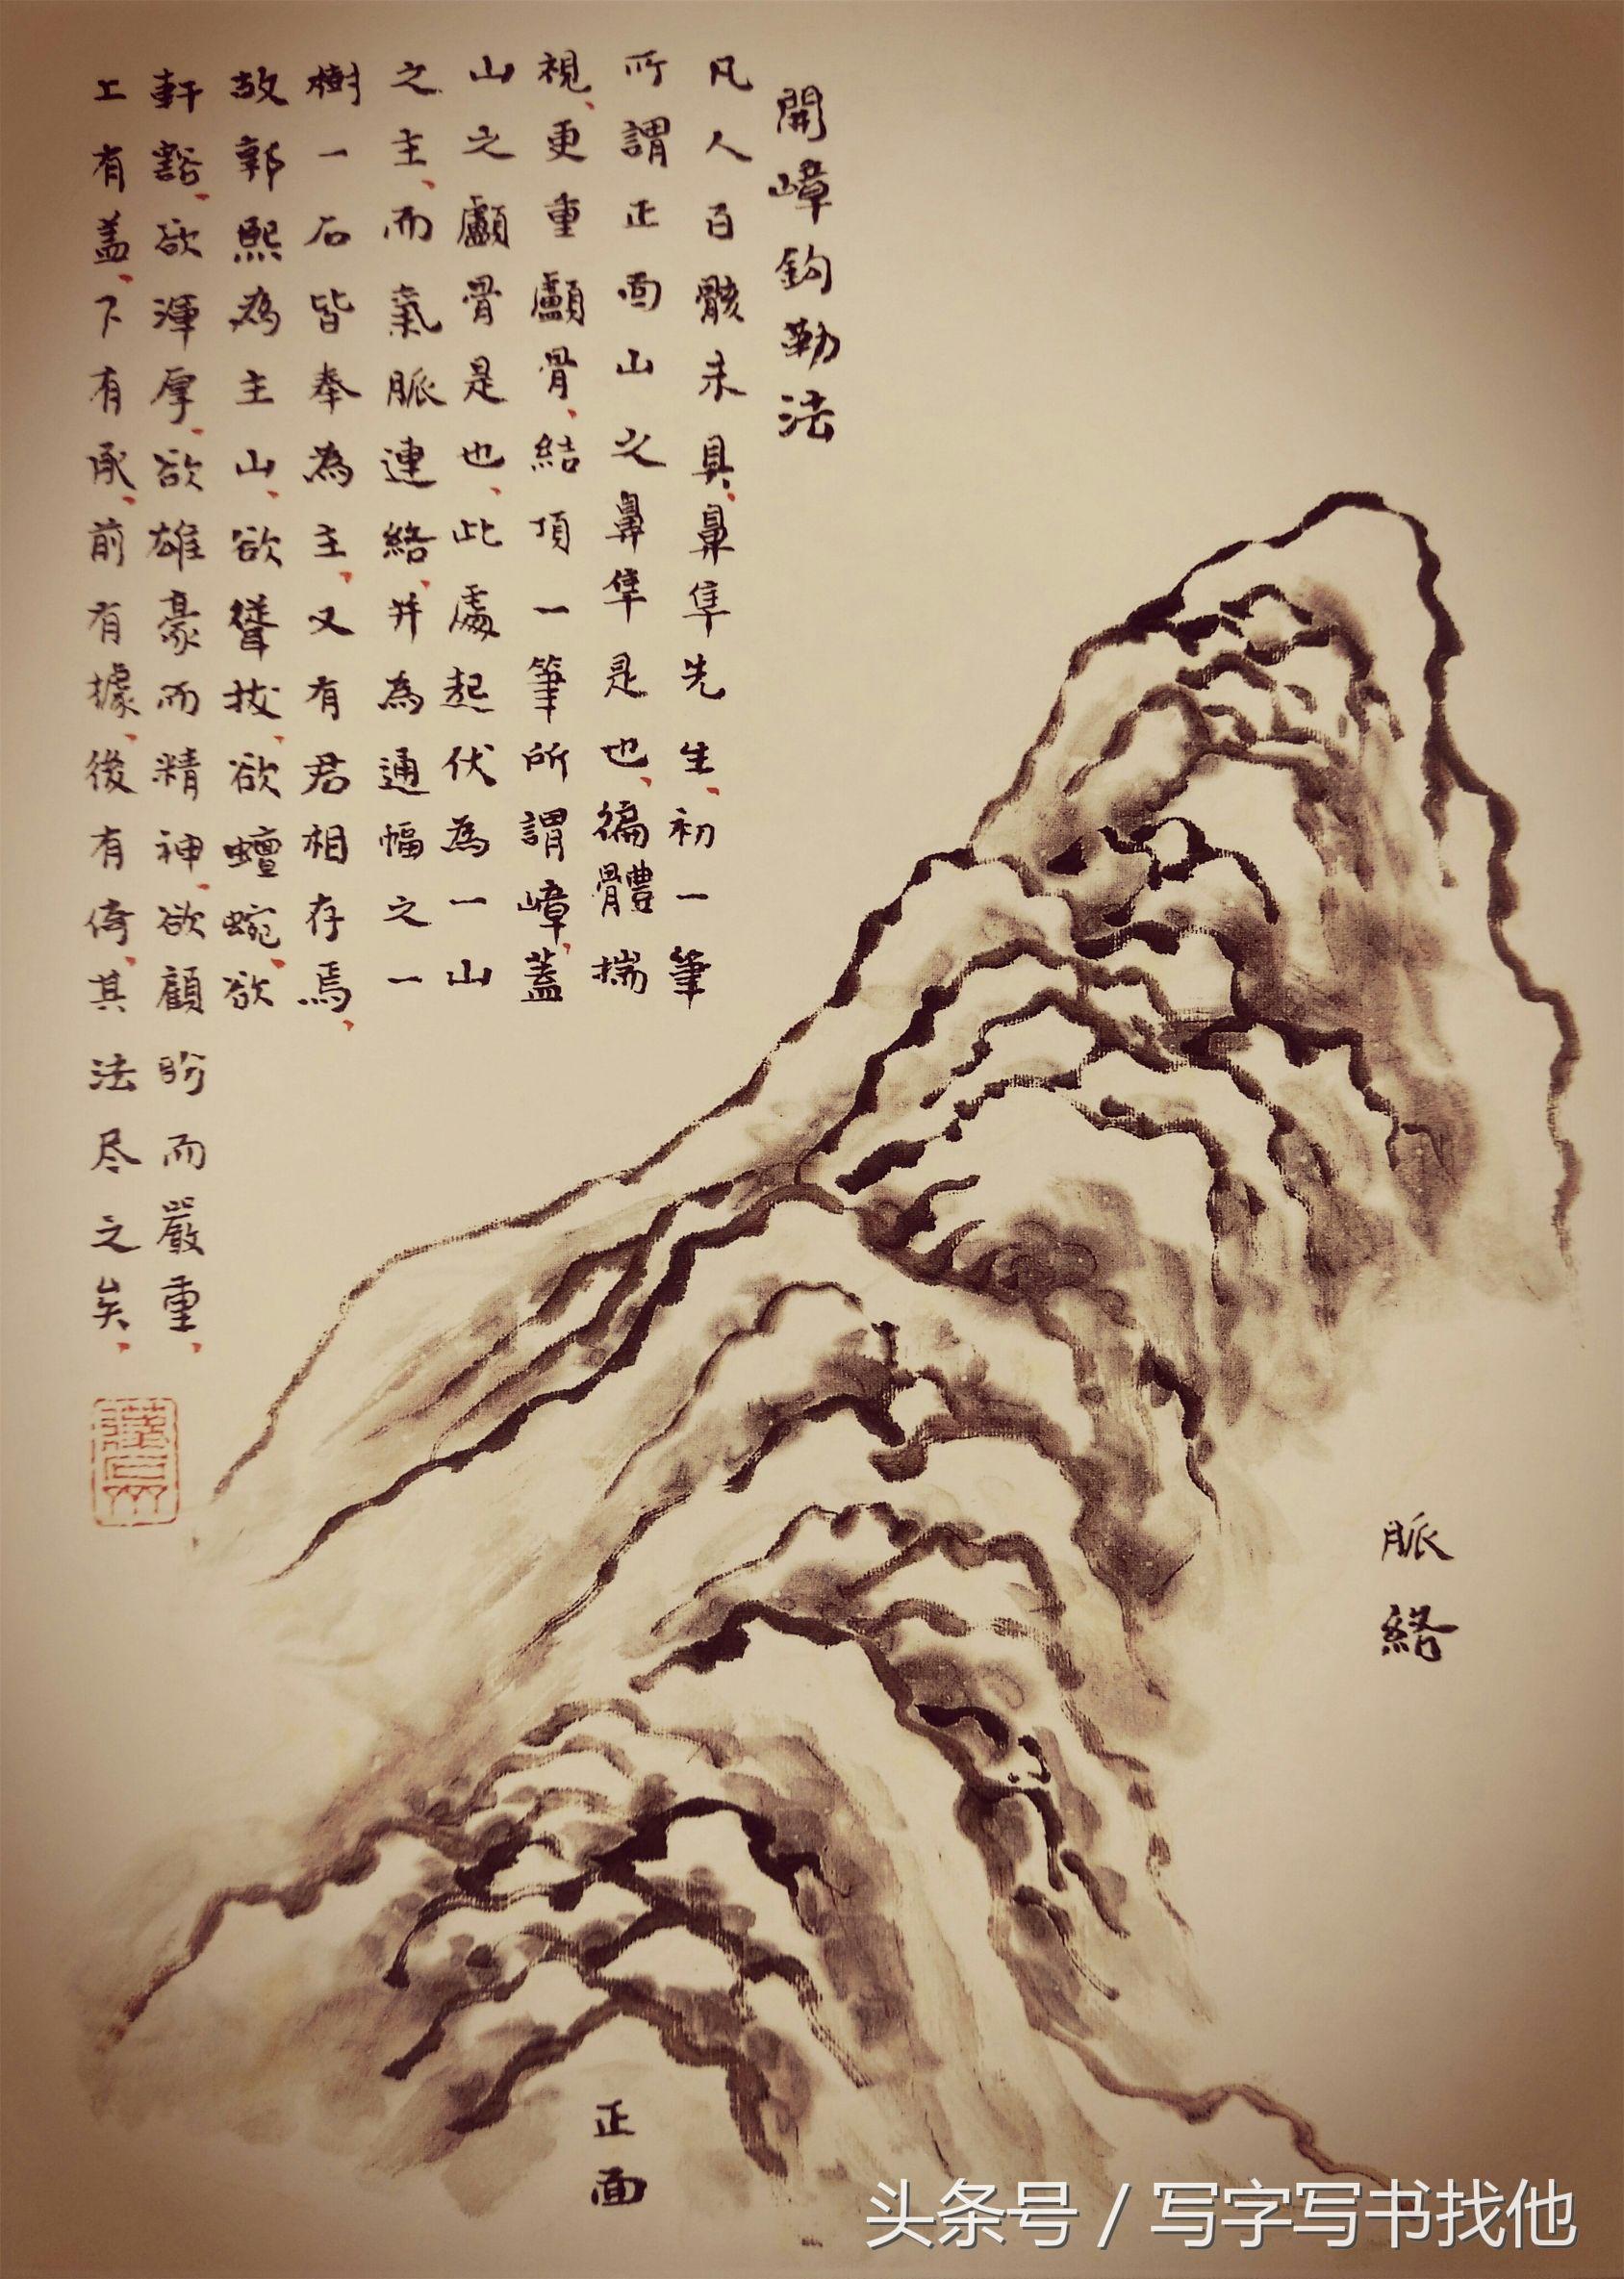 開嶂鈎勒法
凡人百骸未具鼻隼先生初一筆
所謂正面山之鼻隼是也徧體揣
視更重顱骨結頂一筆所謂嶂蓋
山之顱骨是也此處起伏為一山
之主而氣脈連絡并為通幅之一
樹一石皆奉為主又有君相存焉
故郭熙為主山欲聳拔欲蟺蜿欲
軒豁欲渾厚欲雄豪而精神欲顧盼而嚴重
上有盖下有承前有據後有倚其法尽之矣
脈絡
正面
头条号 / 写字写书找他